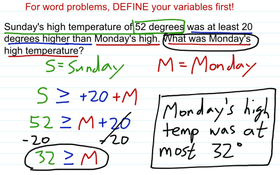 For word problems, DEFINE your variables first!
Sunday's high temperature of 52 degrees was at least 20
degrees higher than Monday's high. What was Monday's
high temperature?
S = Sunday M = Monday
S ≥ +20 + M
52 ≥ M + 20
-20 -20
32 ≥ M
Monday's
high
temp was at
most 32°